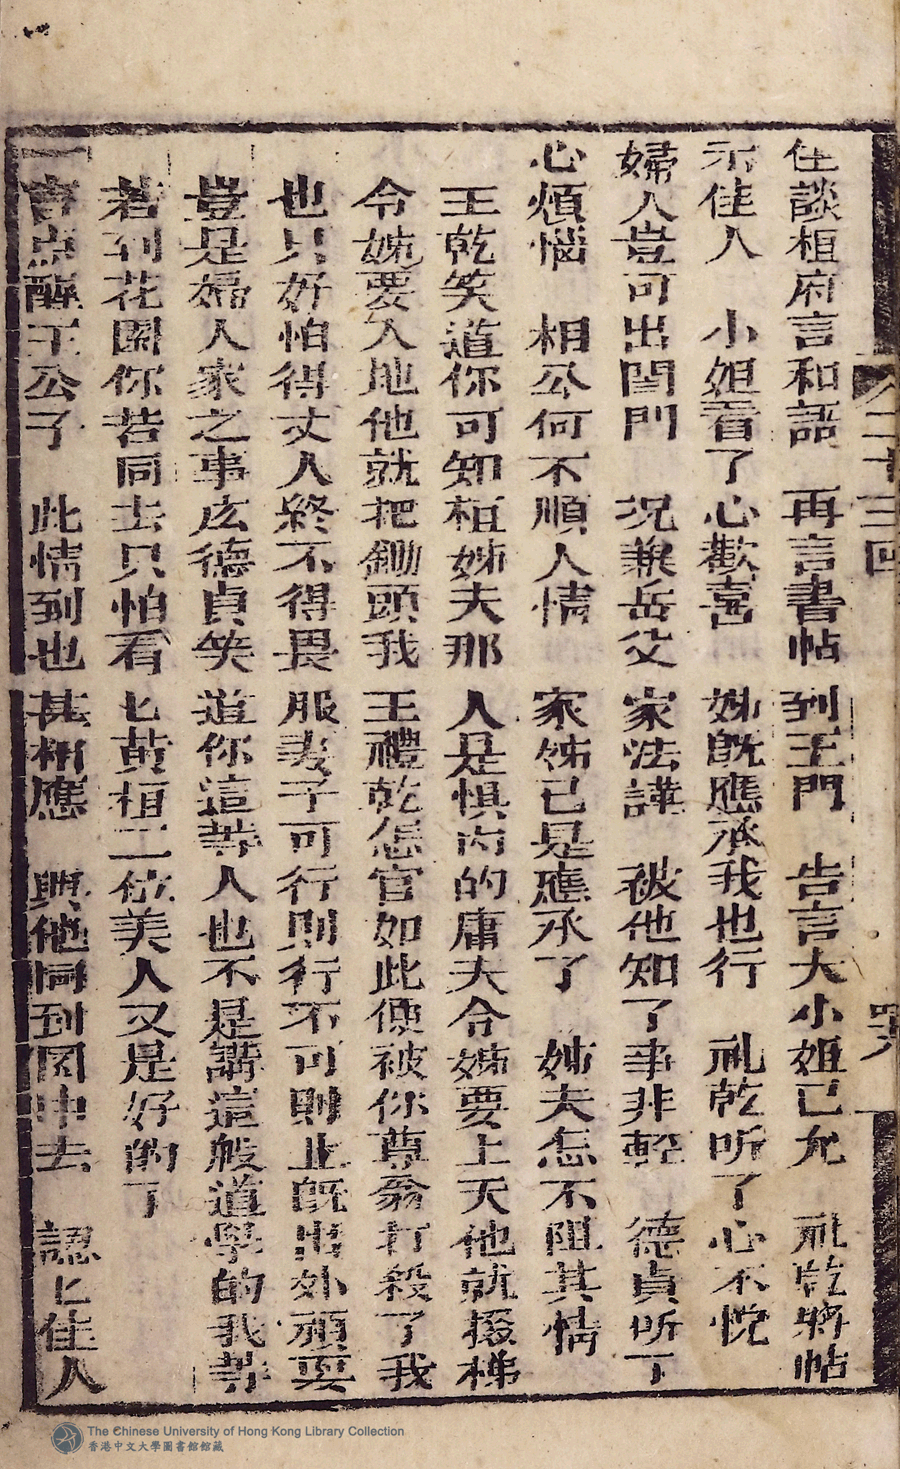 住談桓府言和語　再言書帖到王門　告言大小姐已允　礼乾將帖
示佳人　小姐看了心歡喜　姊既應承我也行　礼乾听了心不悅
婦人豈可出閨門　况兼岳父家法譁　被他知了事非輕　德貞听了
心煩惱　相公何不順人情　家姊已是應承了　姊夫怎不阻其情
王乾笑道你可知桓姊夫那人是惧内的庸夫令姊要上天他就掇梯
令姊要入地他就把鋤頭我王禮乾怎官如此使被你尊翁打殺了我
也只好怕得丈人終不得畏服妻子可行則行不可則止既出外頑耍
豈是婦人家之事庅德貞笑道你這等人也不是講這般道學的我等
若到花園你若同去只怕看匕黄桓二位美人又是好的了
一言点醒王公子　此情到也甚相應　與他同到园中去　認匕佳人
二十三四
The Chinese University of Hong Kong Library Collection
香港中文大學圖書館館藏